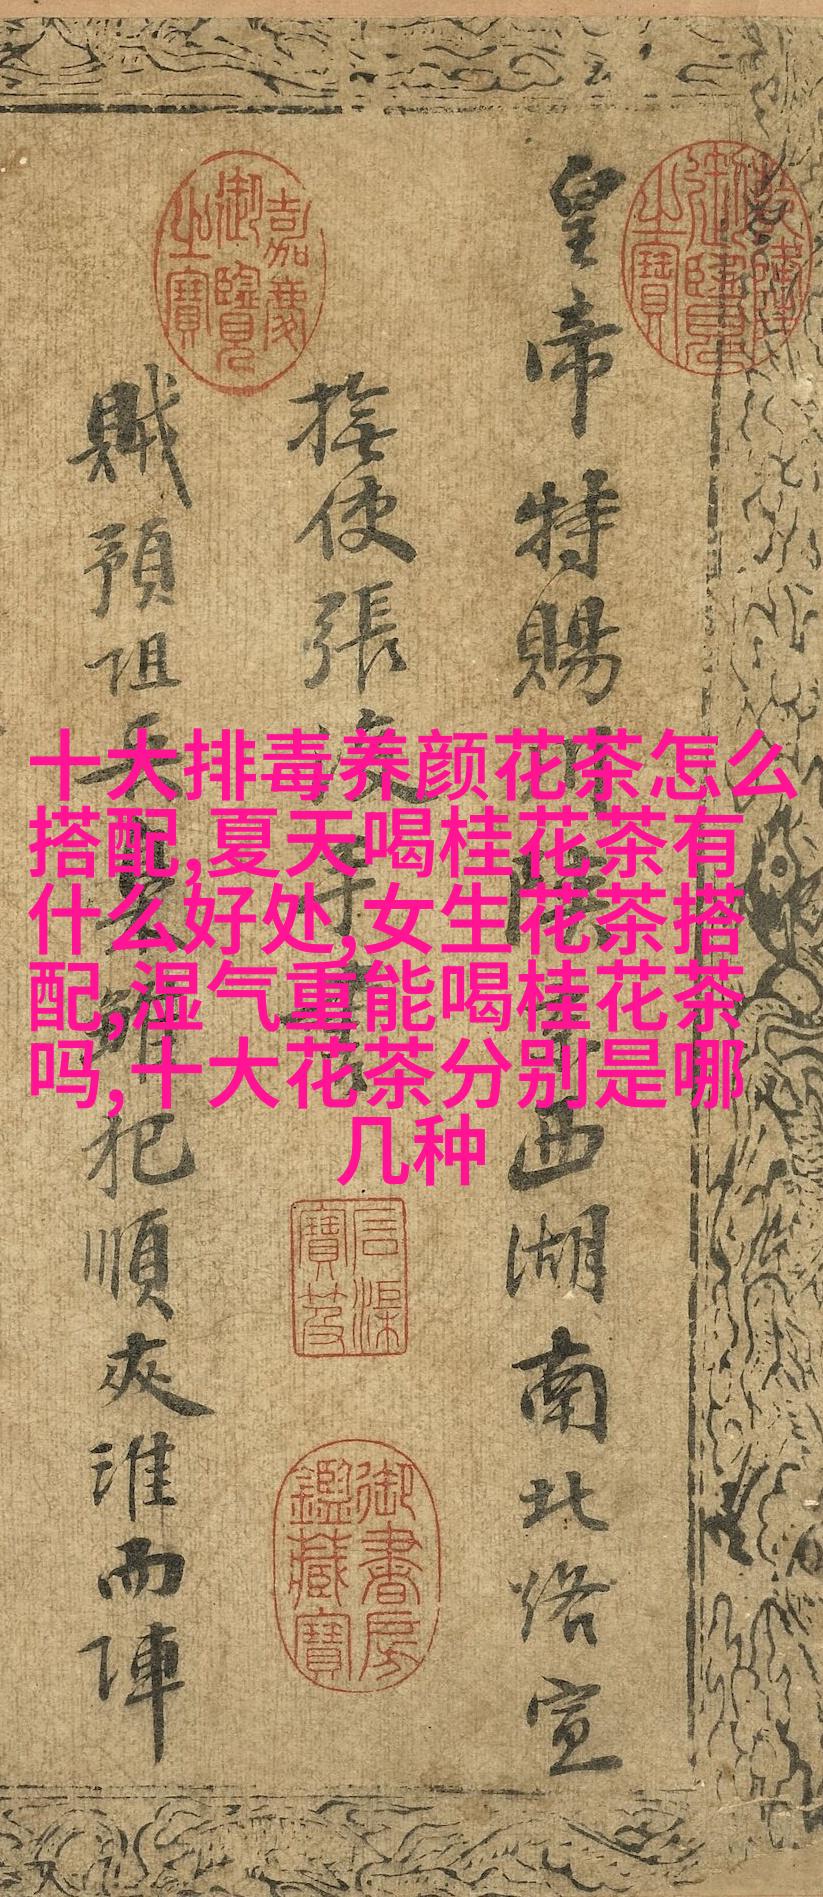 十大排毒养颜花茶怎么
搭配,夏天喝桂花茶有
什么好处,女生花茶搭
配,湿气重能喝桂花茶
吗,十大花茶分别是哪
几种
皇帝特賜
西湖南北烙宣
撫使張浚
賊預阻兵
犯順夾淮而陣
嘉慶御覽之寶
乾隆御覽之寶
御書房鑑藏寶